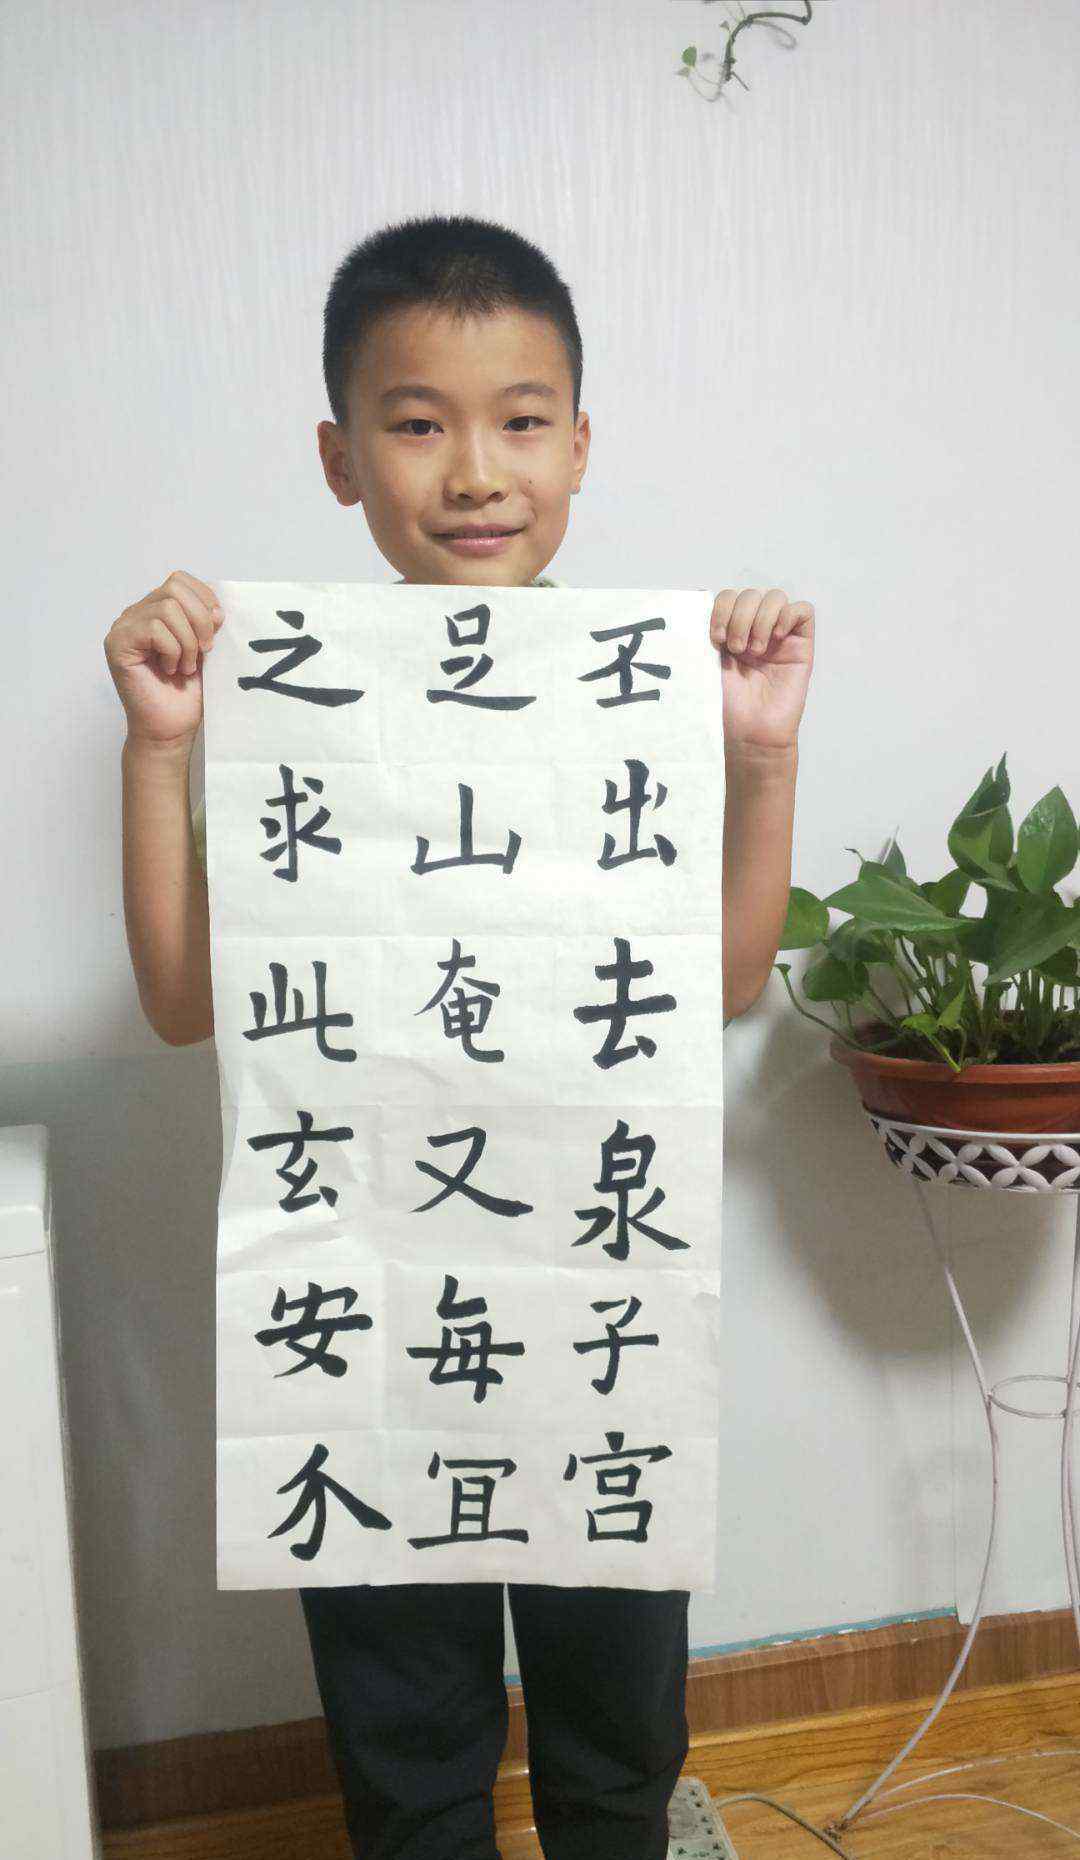 丕出去泉子宫
足山奄又每冝
之求此玄安